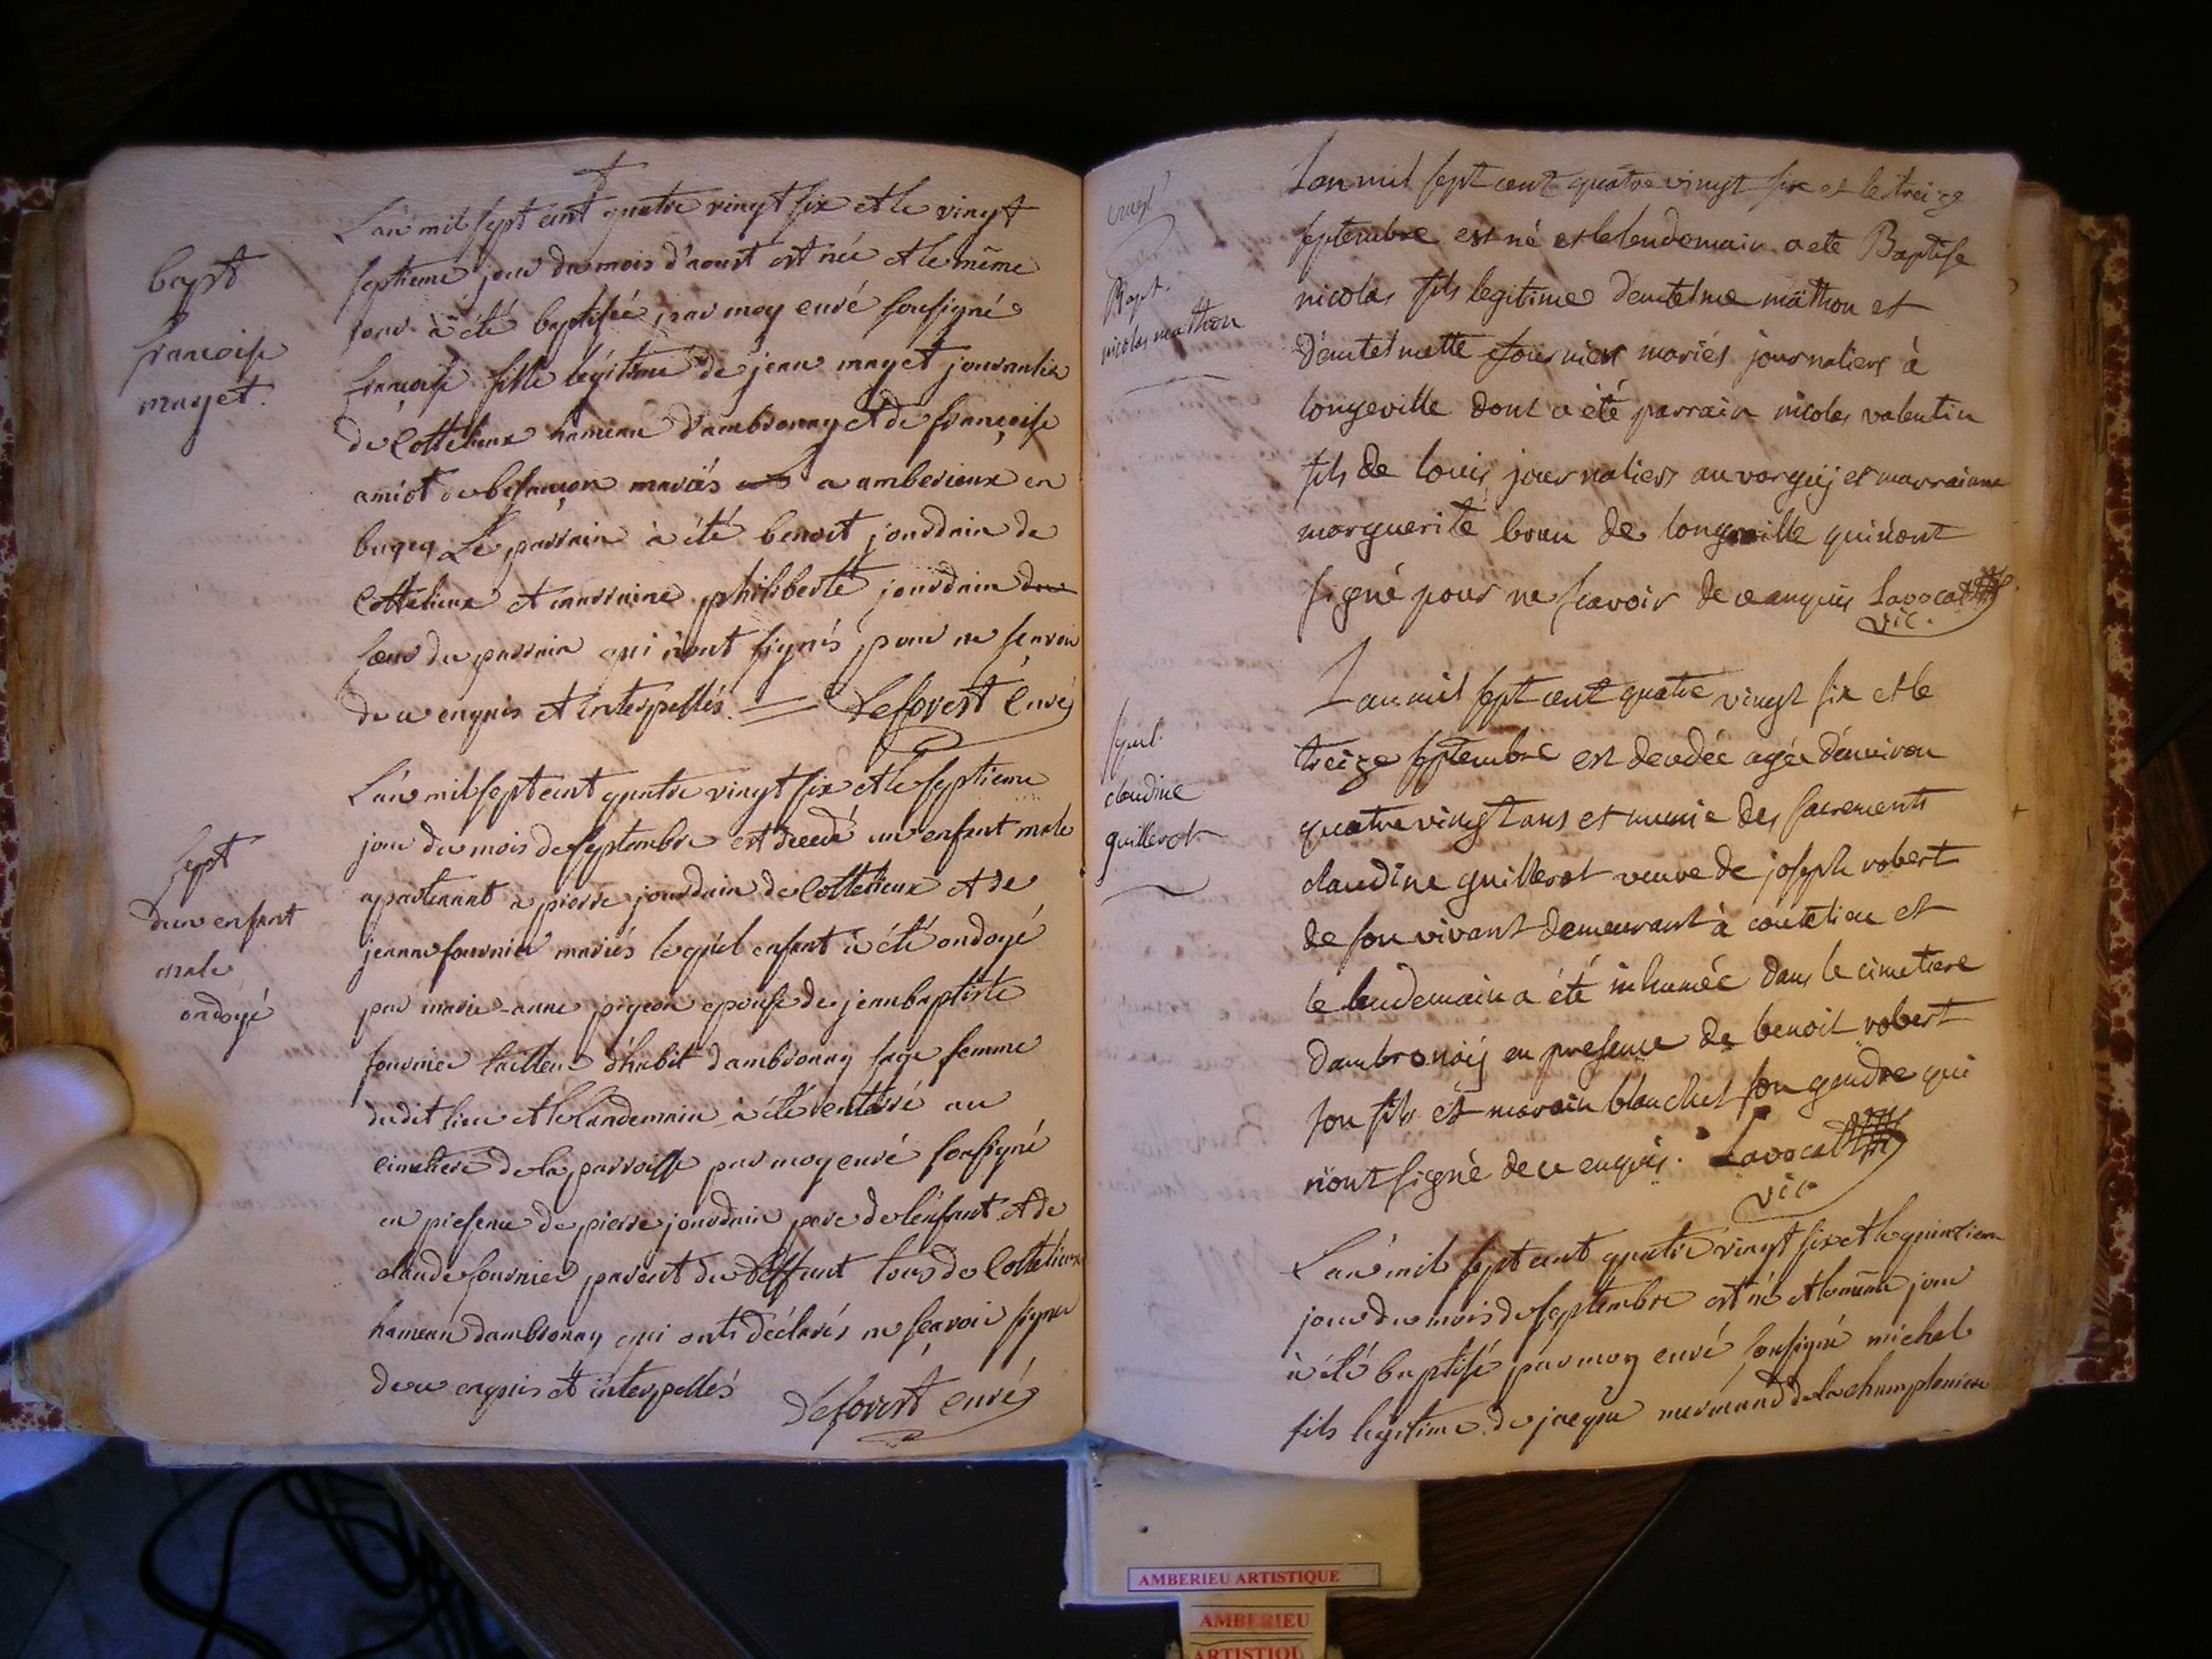 L'an mil sept cent quatre vingt six et le vingt
septieme jour du mois d'aoust est née et le même
jour à été baptisée par moy curé sousigné
françoise fille légitime de jean mayet journalier
de Cottelieux hameau d'ambronay et de françoise
amiot de besançon mariés a amberieux en
bugey Le parrain à été benoit jourdain de
Cottelieux et marraine philiberte jourdain
sœur du parrain qui n'ont signés pour ne scavoir
de ce enquis et interpellés. Deforest Curé
bapt
francoise
mayet.
L'an mil sept cent quatre vingt six et le septieme
jour du mois de septembre est decedé un enfant male
apartenant a pierre jourdain de Cottelieux et de
jeanne fournier mariés lequel enfant à été ondoyé
par marie-anne pigeon epouse de jean baptiste
fournier tailleur d'habit d'ambronay sage femme
dudit lieu et le landemain à été enterré au
cimetiere de la parroisse par moy curé sousigné
en presence de pierre jourdain pere de l'enfant et de
claude fournier parent du deffunt tous de Cottelieux
hameau d'ambronay qui ont déclarés ne sçavoir signer
de ce enquis et interpellés Déforest curé
sept
d'un enfant
male
ondoyé
Lan mil sept cent quatre vingt six et le treize
septembre est né et le lendemain a ete Baptise
nicolas fils legitime d'antelme mathon et
d'antelmette fournier mariés journaliers à
longeville dont a été parrain nicolas valentin
fils de louis journaliers au vorgey et marrainne
marguerite brun de longeville qui n'ont
signé pour ne scavoir de ce anquis Lavocat
vic.
Bapt.
nicolas mathon
Lan mil sept cent quatre vingt six et le
treize septembre est decedée agée d'environ
quatre vingt ans et munie des sacrements
claudine guillerot veuve de joseph robert
de son vivant demeurant à coutelieu et
le lendemain a été inhumée dans le cimetiere
dambronaij en presence de benoit robert
son fils et marain blanchet son gendre qui
n'ont signé de ce enquis. Lavocat
vic.
sepul.
claudine
guillerot
L'an mil sept cent quatre vingt six et le quinzieme
jour du mois de septembre est né et le même jour
à été baptisé par moy curé sousigné michel
fils legitime de jacque mermand de la champleniere
AMBERIEU ARTISTIQUE
AMBERIEU
ARTISTIQU